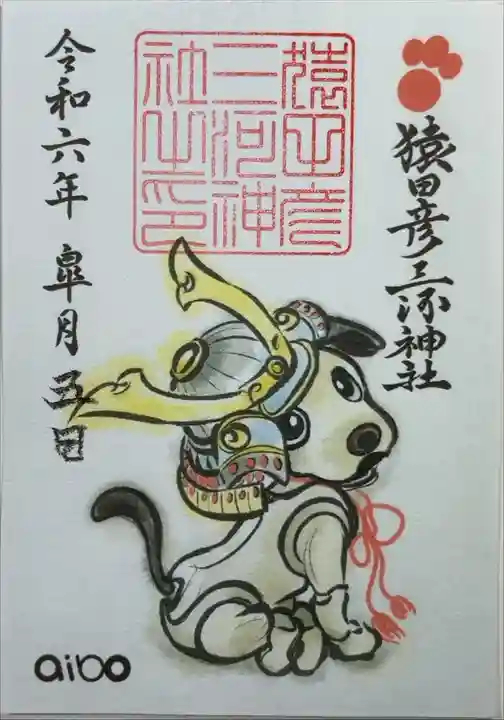 猿田彦三河神社
猿田彦
三河神
社之印
令和六年 皐月五日
aibo